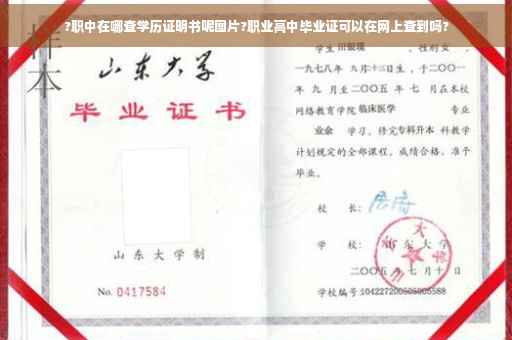 ?职中在哪查学历证明书呢图片?职业高中毕业证可以在网上查到吗?
样本
山东大学
毕业证书
山东大学制
No. 0417584
学生
一九七八年 九月十三日生，于二〇〇一
年 九 月至二〇〇五 年 七 月在本校
网络教育学院 临床医学 专业
业余 学习，修完专科升本 科教学
计划规定的全部课程，成绩合格，准予
毕业。
校 长：
学 校：山东大学
二〇〇五 年 七 月 十 日
学校编号: